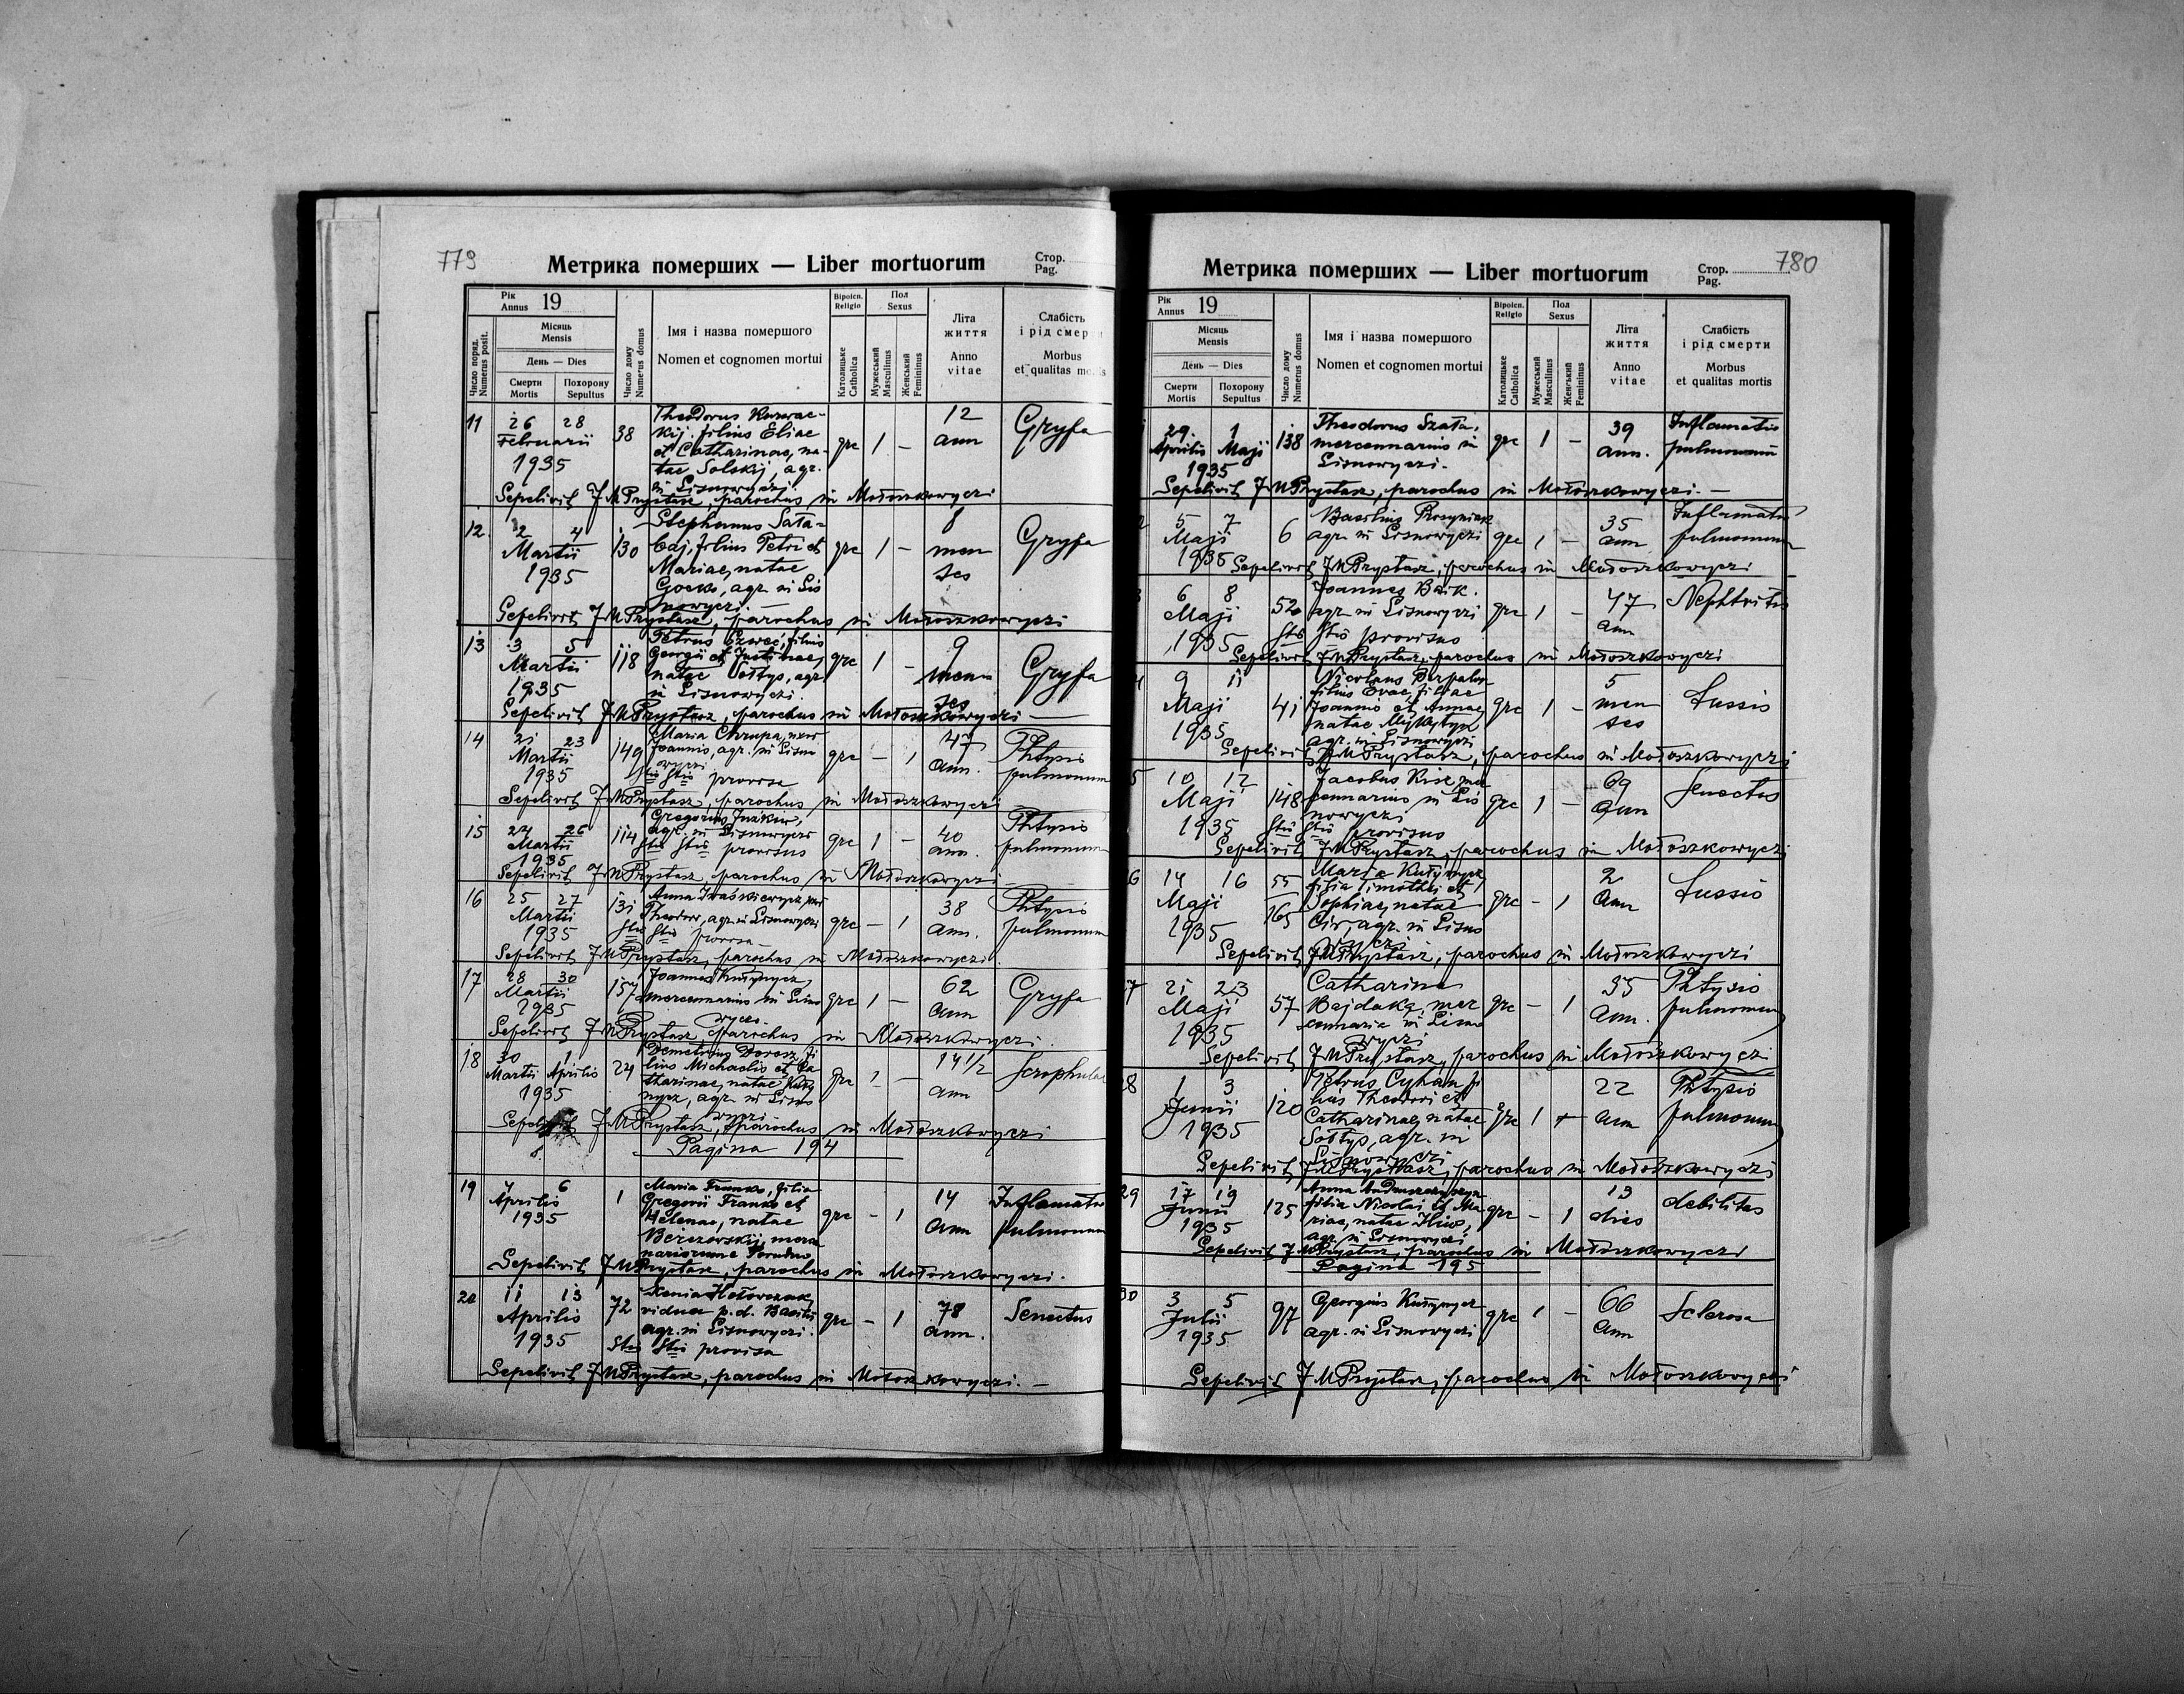 779
Метрика померших — Liber mortuorum
Стор.
Pag.
Рік
Annus 19
Місяць
Mensis
День — Dies
Смерти
Mortis
Похорону
Sepultus
Число поряд.
Numerus posit.
Число дому
Numerus domus
Імя і назва помершого
Nomen et cognomen mortui
Віроісп.
Religio
Католицьке
Catholica
Пол
Sexus
Мужеський
Masculinus
Женський
Femininus
Літа
життя
Anno
vitae
Слабість
і рід смер
Morbus
et qualitas mo
11 26 28 38 Theodorus
Februarii kij, filius Eliae grc 1 – 12 Gryfa
1935 et Catharinae, na- ann
tae Solskij, agr.
in Lisnowyczi.
Sepelivit J M Prystasz, parochus in Mołoszkowyczi
12. 2 4 130 Stephanus Sała-
Martii baj, filius Petri et grc 1 – 8 Gryfa
1935 Mariae, natae men
agr. in Lis ses
nowyczi.
Sepelivit J M Prystasz, parochus in Mołoszkowyczi
13 3 5 118 Petrus Szwec, filius
Martii Georgii et Justinae, grc 1 – 9 Gryfa
1935 natae Sołtys, agr. men
in Lisnowyczi. ses
Sepelivit J M Prystasz, parochus in Mołoszkowyczi —
14 21 23 149 Maria Chrupa, uxor
Martii Joannis, agr. in Lisno grc – 1 47 Phtysis
1935 wyczi ann. pulmonum
Stis Stis provisa
Sepelivit J M Prystasz, parochus in Mołoszkowyczi
15 24 26 114 Gregorius
Martii agr. in Lisnowyczi grc 1 – 40 Phtysis
1935 Stis Stis provisus ann. pulmonum
Sepelivit J M Prystasz, parochus in Mołoszkowyczi
16 25 27 131 Anna Iwaśkiewycz, uxor
Martii Theodori, agr. in Lisnowyczi grc – 1 38 Phtysis
1935 Stis Stis provisa ann. pulmonum
Sepelivit J M Prystasz, parochus in Mołoszkowyczi.
17 28 30 157 Joannes Kułynycz,
Martii mercennarius in Lisno grc 1 – 62 Gryfa
1935 wyczi. ann
Sepelivit J M Prystasz, parochus in Mołoszkowyczi.
18 30 1 24 Demetrius Dorosz, fi
Martii Aprilis lius Michaelis et Ca grc 1 – 14 1/2 Scrophulae
1935 tharinae, natae Kuły ann
nycz, agr. in Lisno
wyczi.
Sepelivit J M Prystasz, parochus in Mołoszkowyczi
Pagina 194
19 4 6 1 Maria Franko, filia
Aprilis Gregorii Franko et grc – 1 14 Inflamatio
1935 Helenae, natae ann pulmonum
Berezowskij, merce
Sepelivit J M Prystasz, parochus in Mołoszkowyczi.
20 11 13 72 Xenia
Aprilis vidua p. d. Basilii grc – 1 78 Senectus
1935 agr. in Lisnowyczi. ann.
Stis Stis provisa
Sepelivit J M Prystasz, parochus in Mołoszkowyczi. —
780
Метрика померших — Liber mortuorum
Стор.
Pag.
Рік
Annus 19
Місяць
Mensis
День — Dies
Смерти
Mortis
Похорону
Sepultus
Число дому
Numerus domus
Імя і назва помершого
Nomen et cognomen mortui
Віроісп.
Religio
Католицьке
Catholica
Пол
Sexus
Мужеський
Masculinus
Женський
Femininus
Літа
життя
Anno
vitae
Слабість
і рід смерти
Morbus
et qualitas mortis
29. 1 138 Theodorus Szała,
Aprilis Maji mercennarius in grc 1 – 39 Inflamatio
1935 Lisnowyczi. ann. pulmonum
Sepelivit J M Prystasz, parochus in Mołoszkowyczi. —
5 7 6 Basilius
Maji agr. in Lisnowyczi grc 1 – 35 Inflamatio
1935 ann pulmonum
Sepelivit J M Prystasz, parochus in Mołoszkowyczi
6 8 52 Joannes Baik.
Maji agr. in Lisnowyczi grc 1 – 47 Nephtritis
1935 Stis Stis provisus ann
Sepelivit J M Prystasz, parochus in Mołoszkowyczi
9 11 41 Nicolaus
Maji filius Evae, filiae grc 1 – 5 Tussis
1935 Joannis et Annae, men
natae Mykytyn ses
agr. in Lisnowyczi
Sepelivit J M Prystasz, parochus in Mołoszkowyczi
5 10 12 148 Jacobus Kisz, mer
Maji cennarius in Lis grc 1 – 69 Senectus
1935 nowyczi ann
Stis Stis provisus
Sepelivit J M Prystasz, parochus in Mołoszkowyczi
6 14 16 55 Maria Kułynycz
Maji 165 filia Timothei et grc – 1 2 Tussis
1935 Sophiae, natae ann
agr. in Lisno
wyczi
Sepelivit J M Prystasz, parochus in Mołoszkowyczi
7 21 23 57 Catharina
Maji Bajdała, mer grc – 1 35 Phtysis
1935 cennaria in Lisno ann. pulmonum
wyczi
Sepelivit J M Prystasz, parochus in Mołoszkowyczi
8 1 3 120 Petrus Cyhan, fi
Junii lius Theodori et grc 1 + 22 Phtysis
1935 Catharinae, natae ann pulmonum
Sołtys, agr. in
Lisnowyczi
Sepelivit J M Prystasz, parochus in Mołoszkowyczi
29 17 19 125 Anna
Junii filia Nicolai et Ma grc – 1 13 debilitas
1935 riae, natae Iliw, dies
agr. in Lisnowyczi
Sepelivit J M Prystasz, parochus in Mołoszkowyczi
Pagina 195
30 3 5 97 Georgius Kułynycz
Julii agr. in Lisnowyczi grc 1 – 66 Sclerosa
1935 ann
Sepelivit J M Prystasz, parochus in Mołoszkowyczi